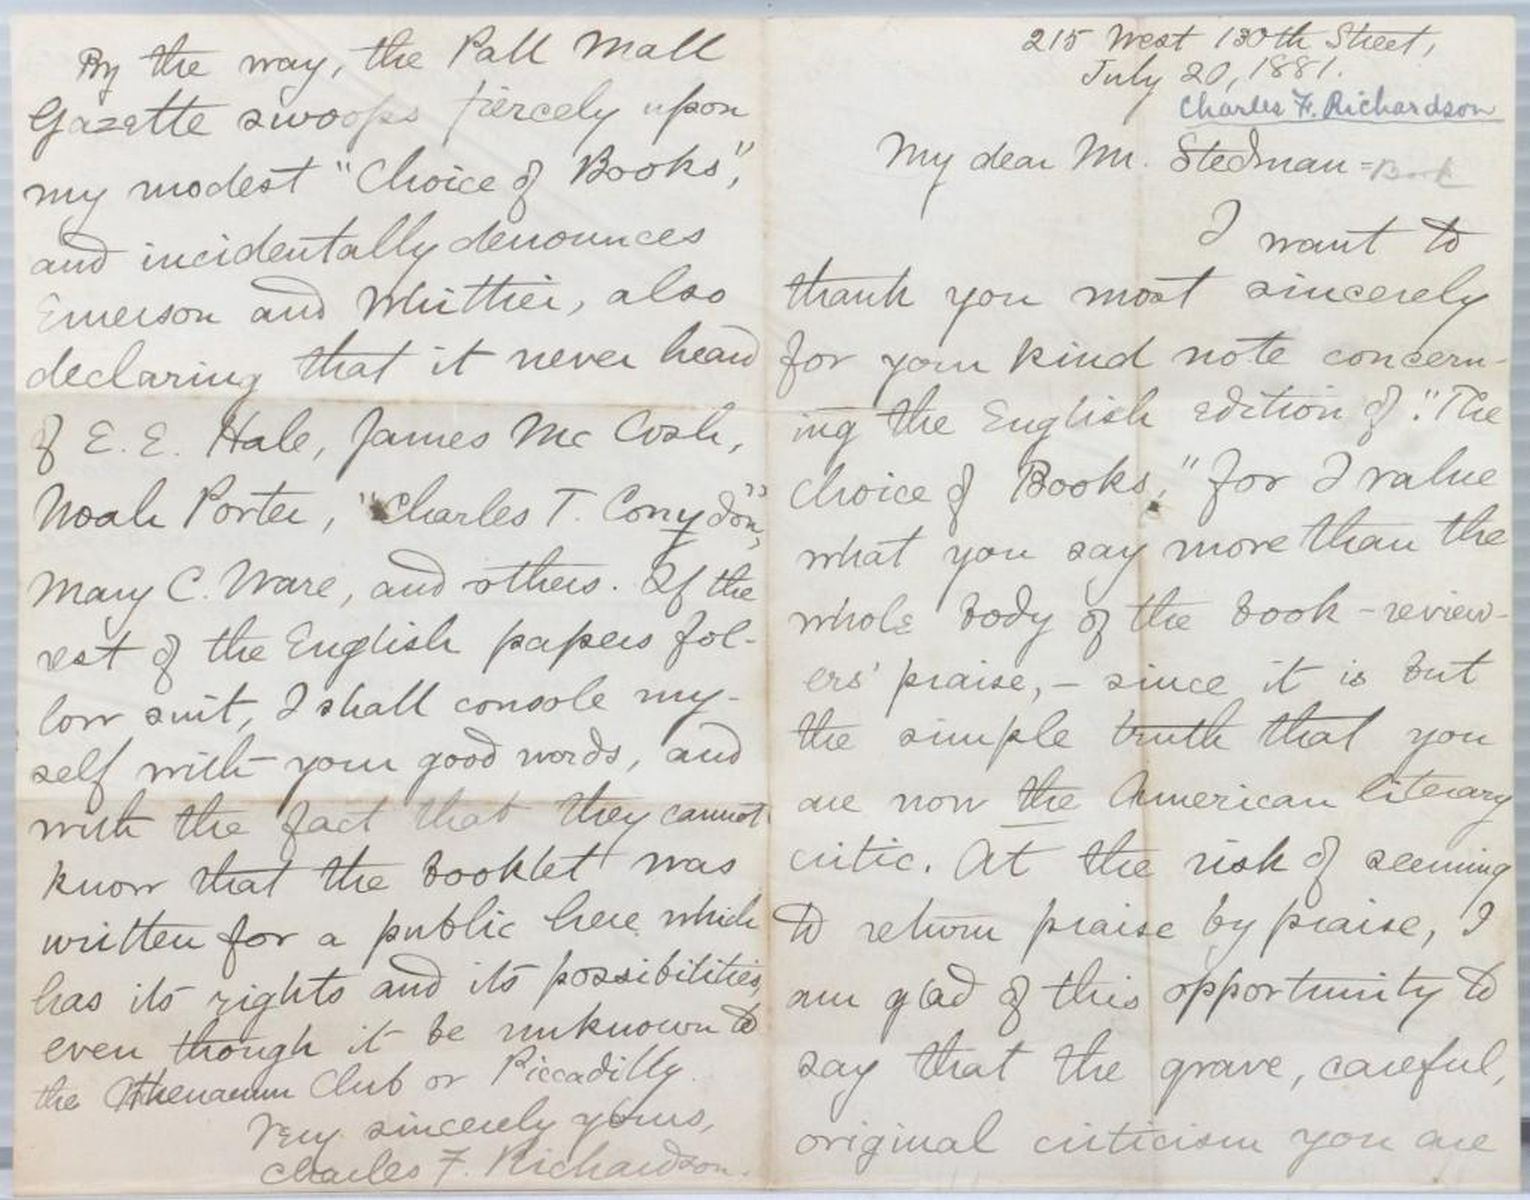 215 West 130th Street,
July 20, 1881.
Charles F. Richardson
My dear Mr. Stedman = Book
I want to
thank you most sincerely
for your kind note concern-
ing the English edition of "The
Choice of Books," for I value
what you say more than the
whole body of the book-review-
ers' praise,— since it is but
the simple truth that you
are now the American literary
critic. At the risk of seeming
to return praise by praise, I
am glad of this opportunity to
say that the grave, careful,
original criticism you are
By the way, the Pall Mall
Gazette swoops fiercely upon
my modest "Choice of Books",
and incidentally denounces
Emerson and Whittier, also
declaring that it never heard
of E. E. Hale, James Mc Cosh,
Noah Porter, "Charles T. Corrydon",
Mary C. Ware, and others. If the
rest of the English papers fol-
low suit, I shall console my-
self with your good words, and
with the fact that they cannot
know that the booklet was
written for a public here which
has its rights and its possibilities,
even though it be unknown to
the Athenaeum Club or Piccadilly.
Very sincerely yours,
Charles F. Richardson.